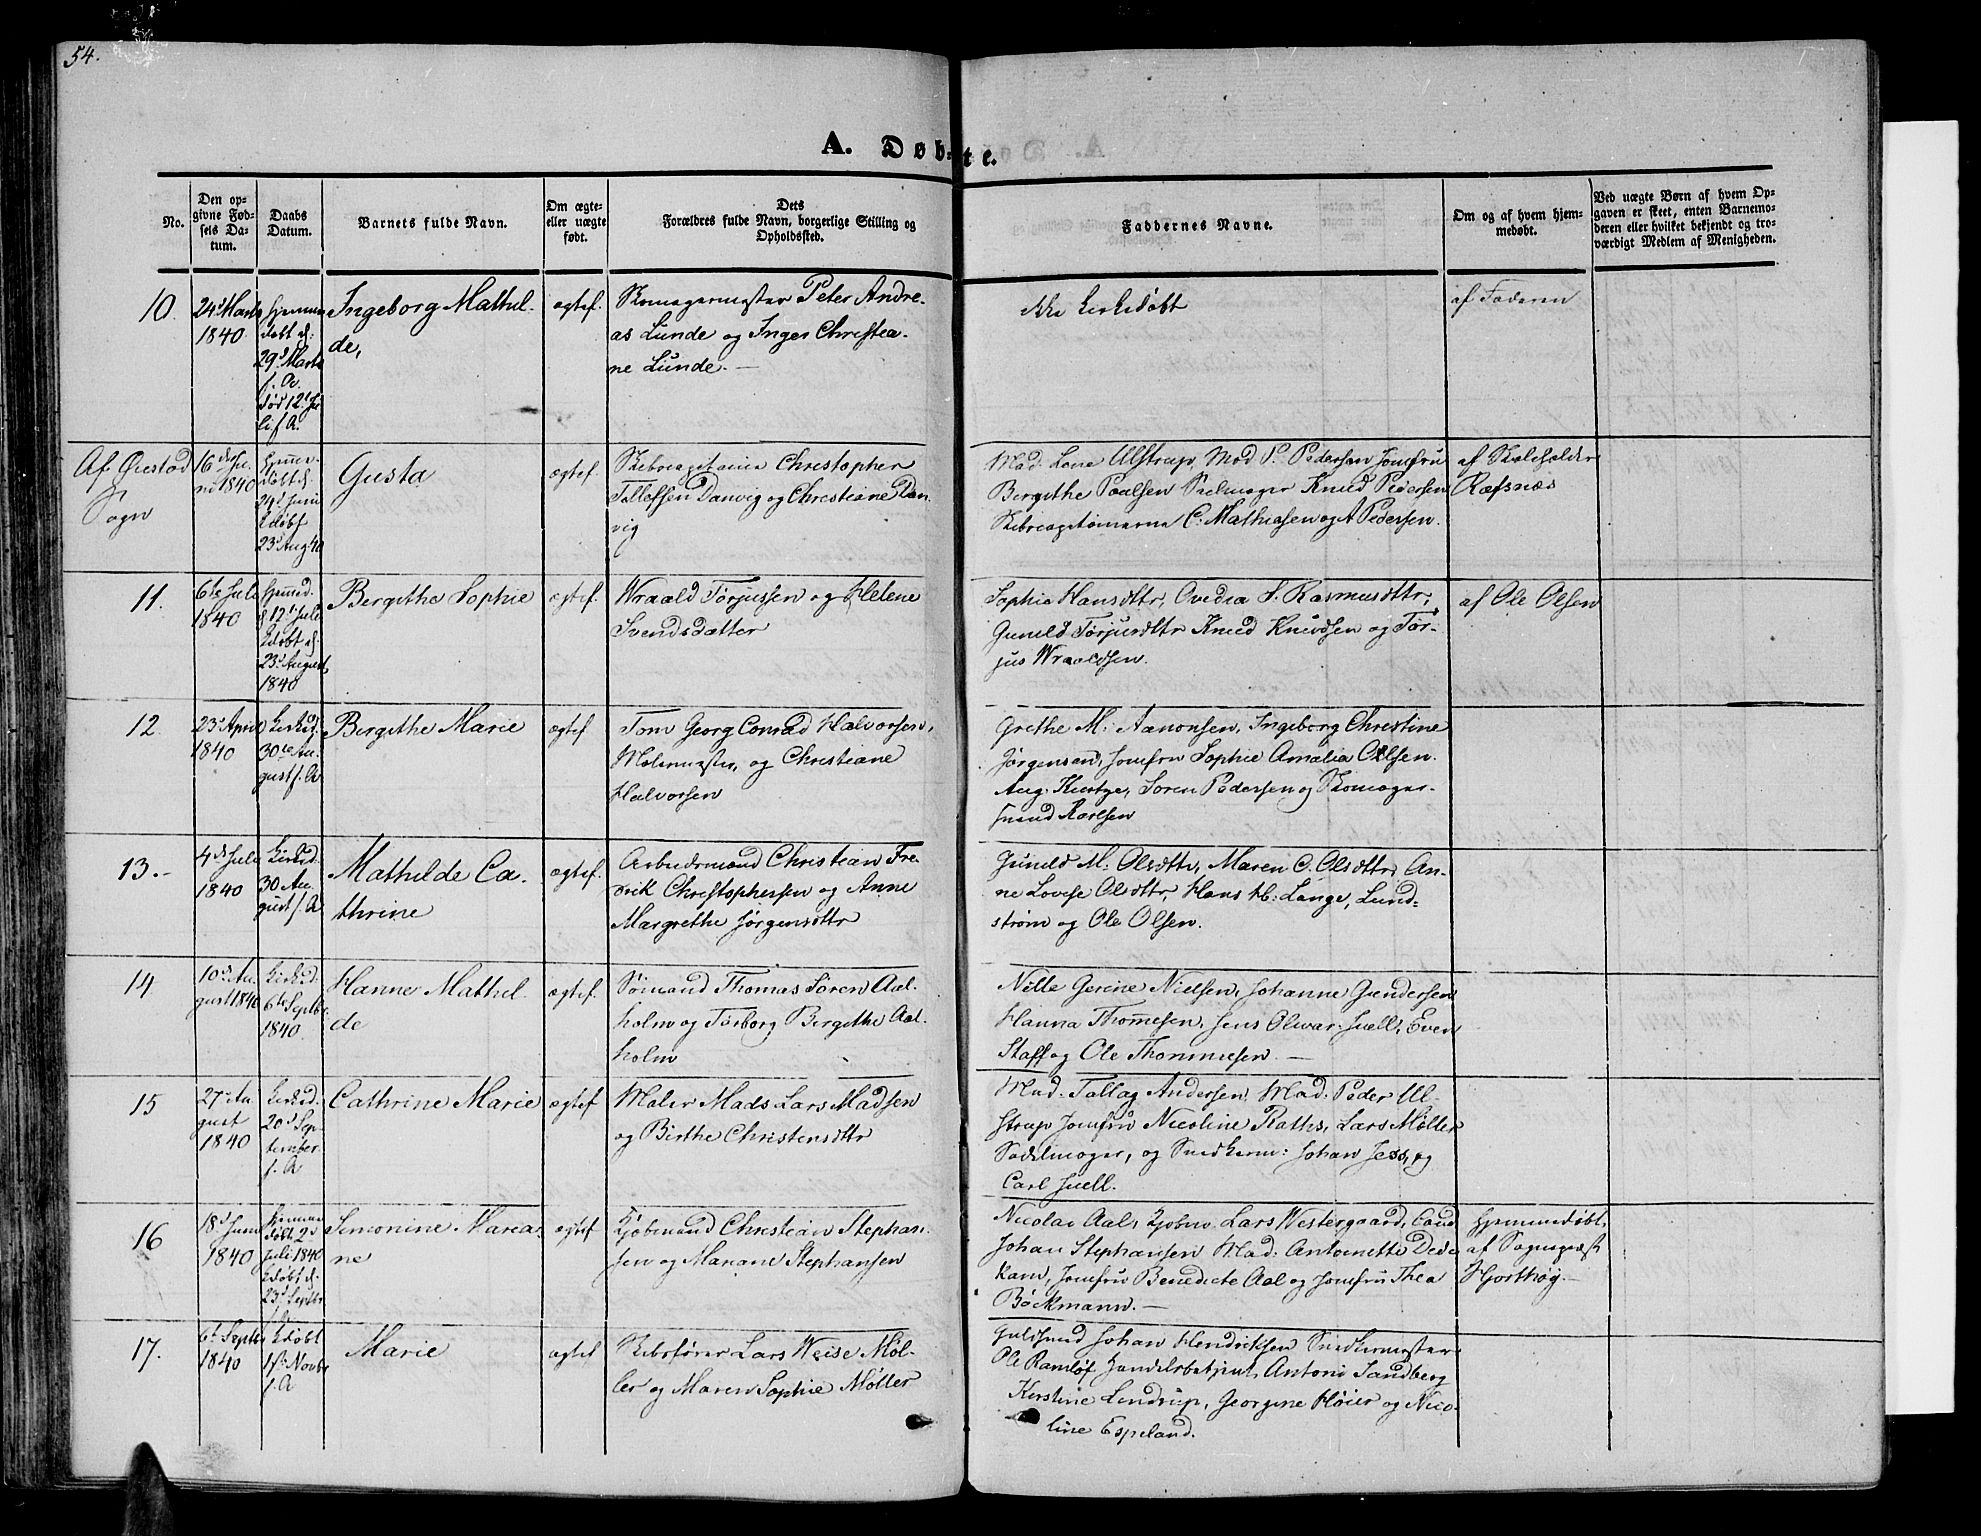 54.
A. Døb-
te.
No.
Den op-
givne Fød-
sels Da-
tum.
Daabs
Datum.
Barnets fulde Navn.
Om ægte-
eller uægte
født.
Dets
Forældres fulde Navn, borgerlige Stilling og
Opholdssted.
Faddernes Navne.
Om og af hvem hjem-
medøbt.
Ved uægte Børn af hvem Op-
gaven er skeet, enten Barnemo-
deren eller hvilket bekjendt og tro-
værdigt Medlem af Menigheden.
10.
24d Marts
1840.
hjemme
døbt d:
29d Marts
f. A.
død 12t Ju
li f A.
Ingeborg Mathil-
de,
ægtef.
Skomagermester Peter Andre-
as Lunde og Inger Christia-
ne Lunde. —
ikke kirkedøbt
af Faderen
Af Øiestad
Sogn
16de Ju-
ni 1840
hjem-
døbt d.
24d Juni
kdøbt
23d Aug 40
Gusta
ægtef.
Skibscapitaine Christopher
Tellefsen Danvig og Christiane Dan
vig
Mad. Lene Ulstrup, Mad P. Pedersen Jomfru
Bergithe Paalsen Seilmager Knud Pedersen
Skibscapitainerne C. Mathiasen og A Pedersen.
af Skoleholder
Ræfsnæs
11.
6te Juli
1840
hjemed.
d. 12t Juli
kdøbt d.
23d August
1840
Bergithe Sophie
ægtef.
Wraald Torjussen og Helene
Svendsdatter
Sophie Hansdttr, Ovedia S. Rasmusdttr,
Guneld Torjusdttr Knud Knudsen og Tor-
jus Wraaldsen.
af Ole Olsen
12
23d April
1840
kirked.
30te Au
gust f. A
Bergithe Marie
ægtef
Tom Georg Conrad Halvorsen,
Malermester, og Christiane
Halvorsen
Grethe M. Aanonsen, Ingeborg Christine
Jørgensen, Jomfru Sophie Amalia Olsen.
Aug. Kurtze, Søren Pedersen og Skomager-
svend Karlsen
13.-
4de Juli
1840
kirked
30 Au
gust f. A
Mathilde Ca-
thrine
ægtef.
Arbeidsmand Christian Fre
drik Christophersen og Anne
Margrethe Jørgensdttr
Guneld M. Olsdttr, Maren C. Olsdttr, An-
ne Lovise Olsdttr, Hans H: Lange, Lund-
strøm og Ole Olsen.
14
10de Au
gust 1840
kirked.
6te Septbr.
1840
Hanne Mathil
de
ægtef.
Sømand Thomas Søren Aal-
holm og Torborg Bergithe Aal-
holm
Nille Gerine Nielsen, Johanne Gundersen
Hanna Thomesen, Jens Oluar Juell, Even
Staff og Ole Thommesen. —
15
27de Au
gust
1840
kirked.
20d Sep-
tember
f. A
Cathrine Marie
ægtef
Maler Mads Lars Madsen
og Birthe Christensdttr
Mad. Tallag Andersen, Mad. Peder Ul-
strup Jomfru Nicoline Raths, Lars Møller
Sadelmager, og Snedkerm: Johan Jess, og
Carl Juell.
16
18d Juni
1840
hjemme
døbt 2d
Juli 1840
kdøbt d.
23d Septbr
f. A
Simonine Maria-
ne
ægtef
Kjøbmand Christian Stephan-
sen og Mariane Stephansen
Nicolai Aal, Kjøbm. Lars Westergaard, Cand
Johan Stephansen Mad: Antoinette Dede
kam, Jomfru Benedicte Aal og Jomfru Thea
Bøckmann. —
hjemmedøbt,
af Sognepræst
Hjorthøg.
17.
6t Septbr
1840
kdøbt
1ste Novbr
f. A
Marie
ægtef
Skibsfører Lars Weise Møl-
ler og Maren Sophie Møller
Guldsmed Johan Hendriksen Snedkermester
Ole Ramløf, Handelsbetjent, Antoni Sandberg
Kerstine Lendrup, Georgine Høier og Nico-
line Espeland.